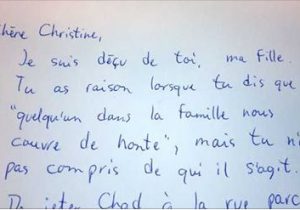 Chère Christine,
Je suis déçu de toi, ma fille.
Tu as raison lorsque tu dis que
"quelqu'un dans la famille nous
couvre de honte", mais tu n
pas compris de qui il s'agit.
jeter Chad à la rue parc